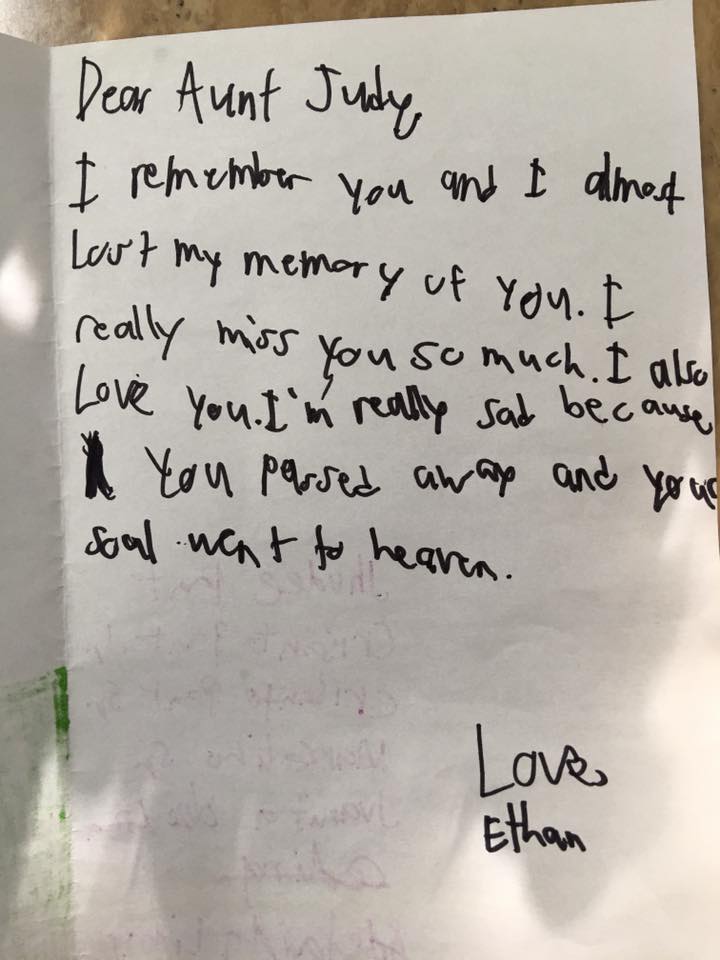 Dear Aunt Judy,
I remember you and I almost
Lost my memory of you. I
really miss you so much. I also
Love you. I'm really sad because
You passed away and your
soal went to heaven.
Love,
Ethan